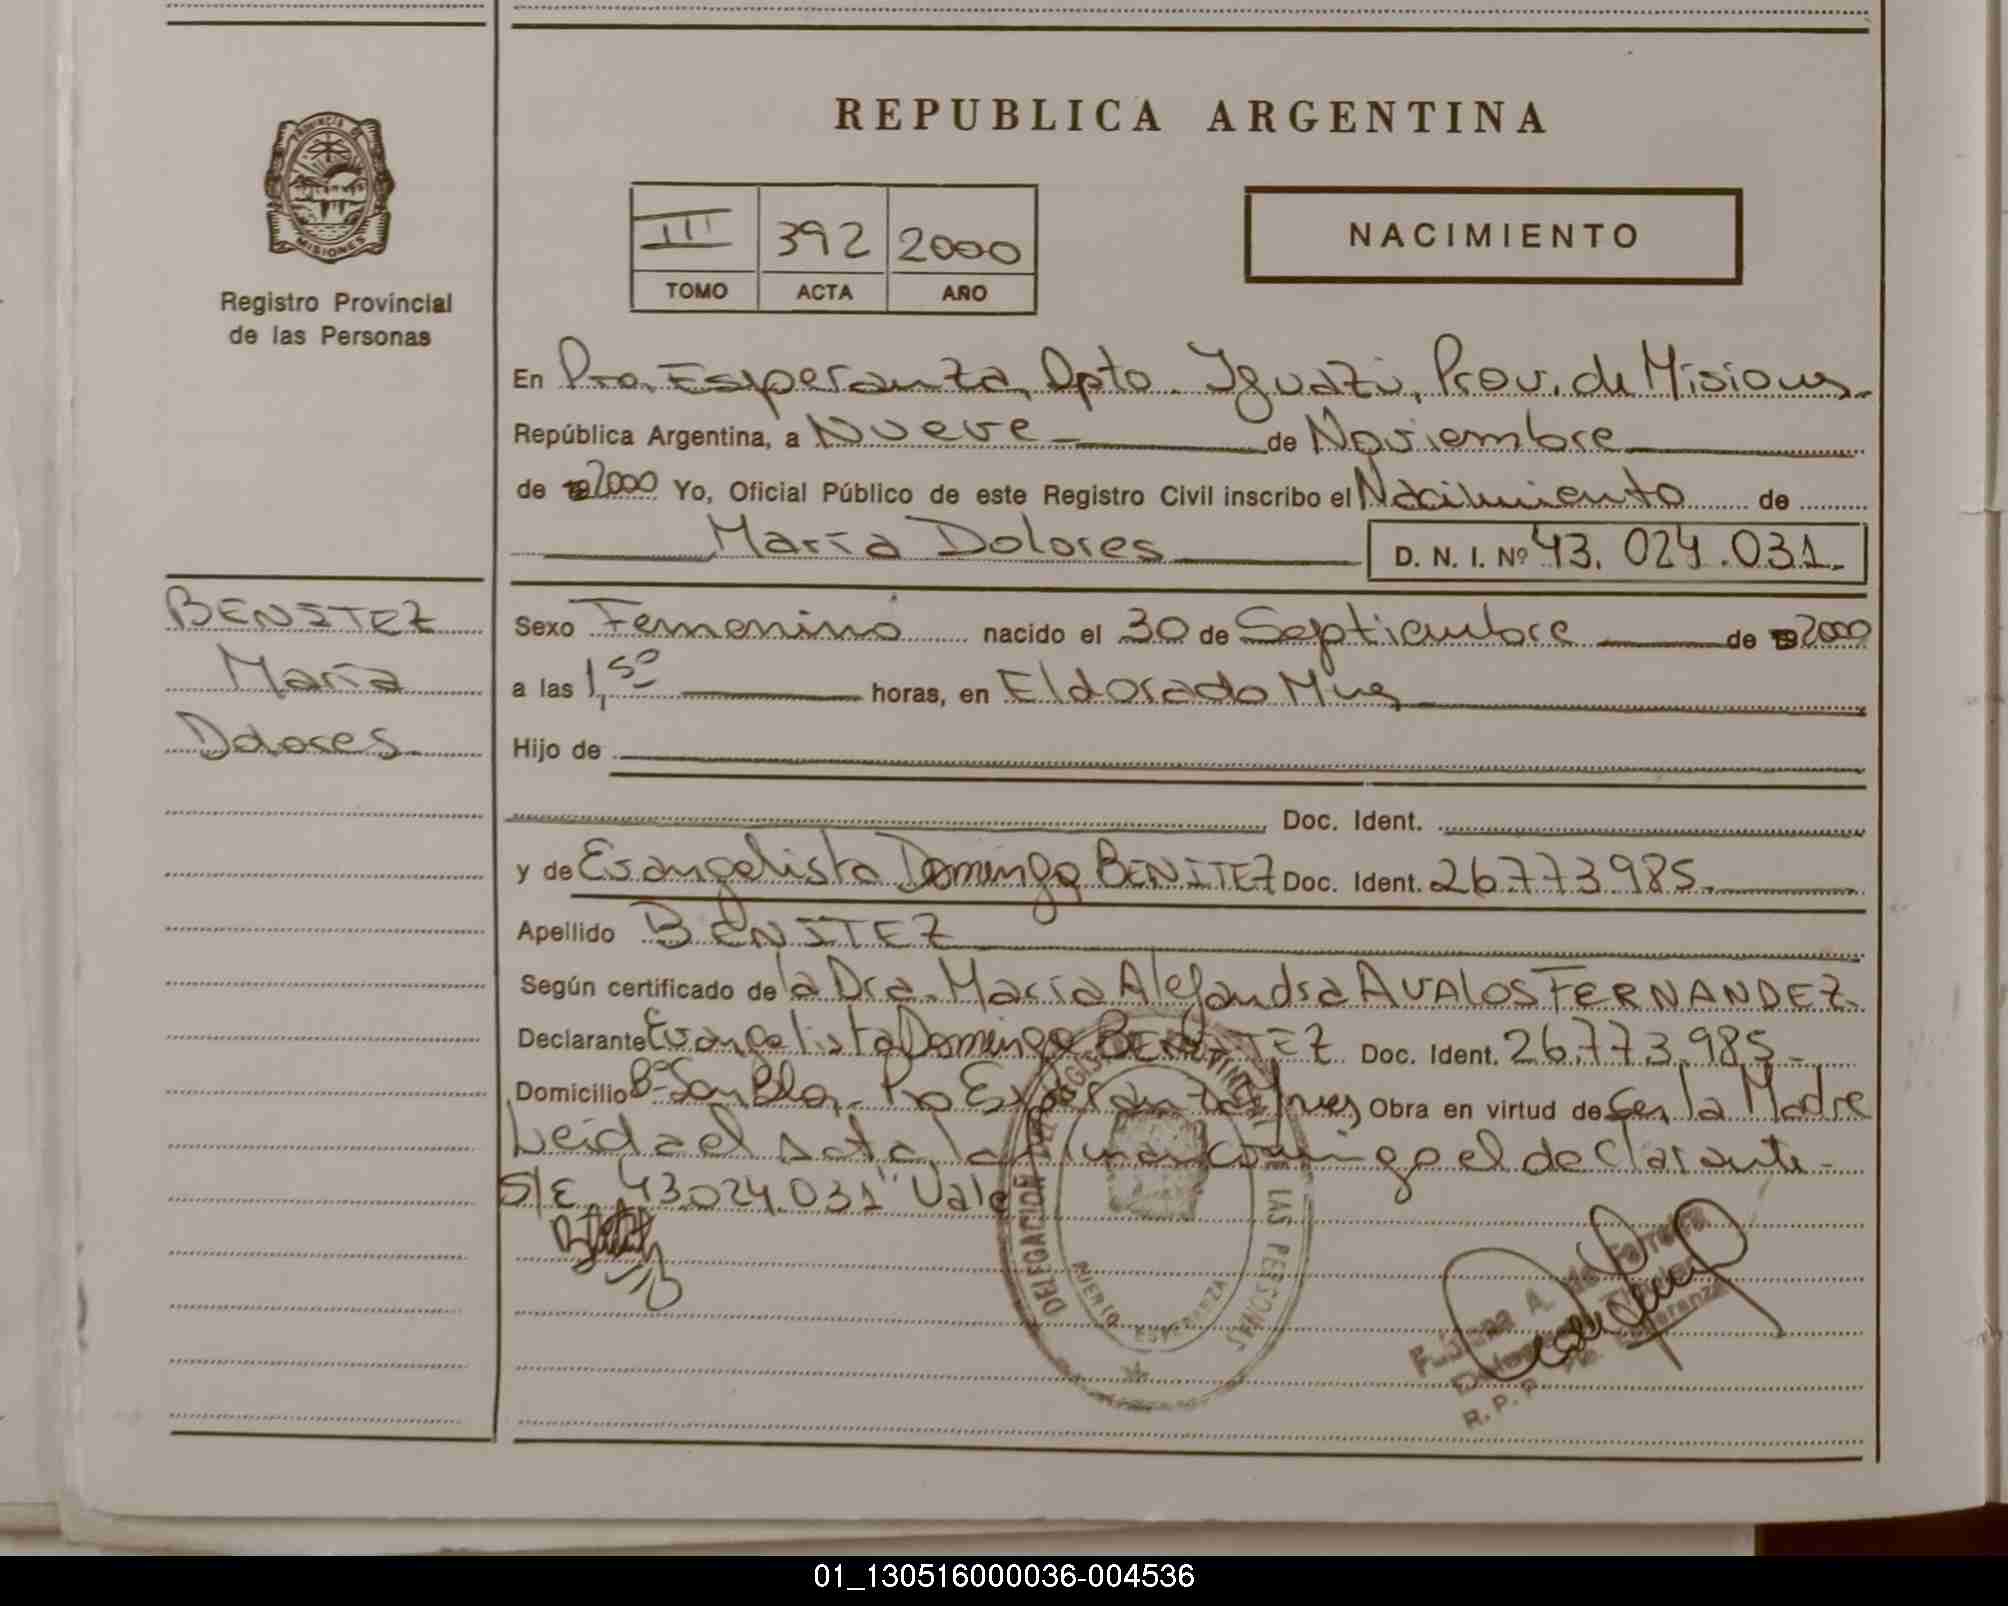 REPUBLICA ARGENTINA
PROVINCIA DE
MISIONES
Registro Provincial
de las Personas
III 392 2000
TOMO ACTA AÑO
NACIMIENTO
En Pto. Esperanza, Dpto. Iguazú, Prov. de Misiones.-
República Argentina, a Nueve de Noviembre
de 2000 Yo, Oficial Público de este Registro Civil inscribo el Nacimiento de
María Dolores D. N. I. Nº 43. 024.031.-
BENITEZ
María
Dolores.
Sexo Femenino nacido el 30 de Septiembre de 2000
a las 1,50 horas, en Eldorado Mnes
Hijo de
Doc. Ident.
y de Evangelista Domingo BENITEZ Doc. Ident. 26.773.985.
Apellido BENITEZ
Según certificado de la Dra. María Alejandra AVALOS FERNANDEZ.
Declarante Evangelista Domingo BENITEZ Doc. Ident. 26.773.985.-
Domicilio Bº San Blas Pto Esperanza Mnes, Obra en virtud de Ser la Madre
Leida el acta, la firma conmigo el declarante.-
S/E 43.024.031" Vale
DELEGACION DEL REGISTRO PROVINCIAL DE LAS PERSONAS
PUERTO ESPERANZA
01_130516000036-004536